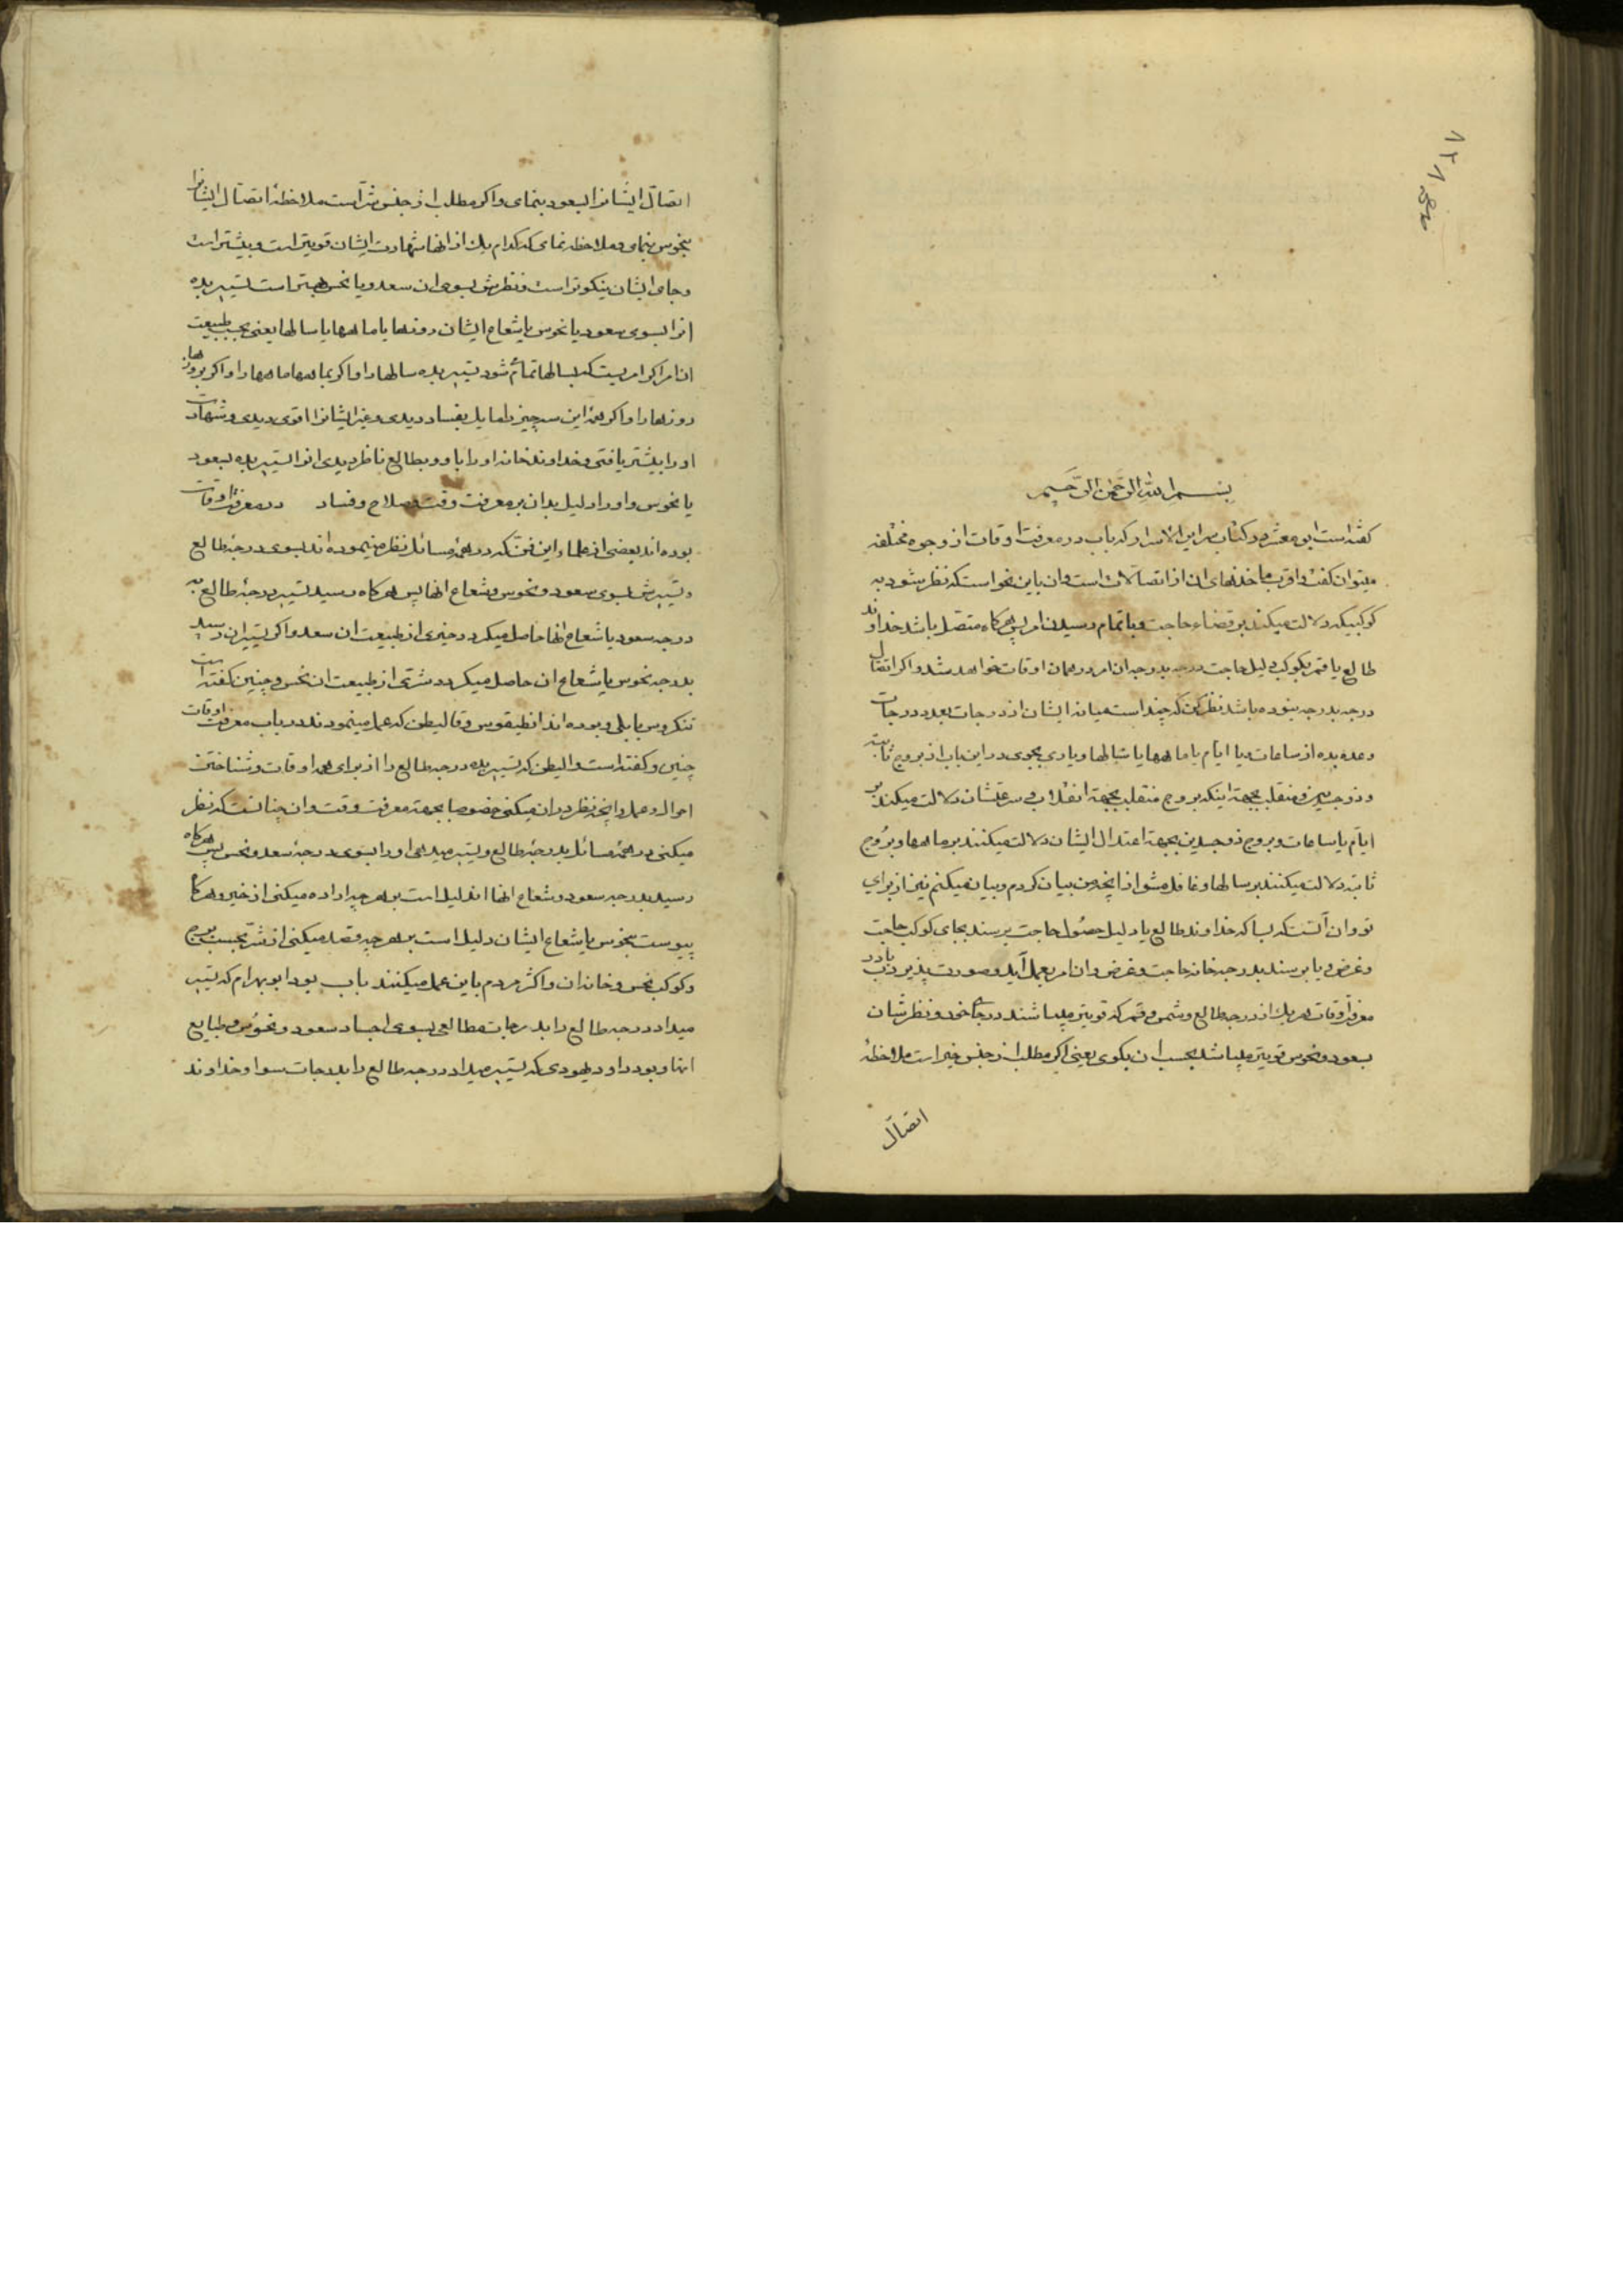 بسم الله الرحمن الرحیم
کفته است ابو معشر در کتاب سرایر الاسرار که باب در معرفت اوقات از وجوه مختلفه
میتوان کفت و اقرب ماخذهای ان از اتصالات است و ان باین نحو است که نظر شود به
کوکبیکه دلالت میکند بر قضاء حاجت و باتمام رسیدن امر پس هرکاه متصل باشد خداوند
طالع یا قمر بکوکب دلیل حاجت درجه بدرجه ان امر در همان اوقات خواهد شد و اکر اتصال
درجه بدرجه نبوده باشد نظر کن که چند است میانه ایشان از درجات بعدد درجات
وعده بده از ساعات و یا ایام یا ماهها یا سالها و یاری بجوی در این باب از بروج ثابته
و ذوجسدین و منقلب بجهة اینکه بروج منقلب بجهة انقلاب و سرعتشان دلالت میکند بر
ایام یا ساعات و بروج ذوجسدین بجهة اعتدال ایشان دلالت میکنند بر ماهها و بروج
ثابته دلالت میکنند بر سالها و غافل مشو از انچه من بیان کردم و بیان میکنم نیز از برای
تو و ان آنست که بسا که خداوند طالع یا دلیل حصول حاجت برسند بجای کوکب حاجت
و غرض و یا برسند بدرجه خانه حاجت و غرض و ان امر بعمل آید و صورت پذیرد باب در
معرفة اوقات هر یك از درجه طالع و شمس و قمر که قویتر میباشند در جای خود و نظرشان
بسعود و نحوس قویتر میباشد بحسب ان بکوی یعنی اکر مطلب از جنس خیر است ملاحظهٔ
اتصال
اتصال ایشانرا بسعود بنمای و اکر مطلب از جنس شر است ملاحظهٔ اتصال ایشانرا
بنحوس بنمای و ملاحظه نمای که کدام یك از انها شهادت ایشان قویتر است و بیشتر است
و جای ایشان نیکوتر است و نظرش بسوی ان سعد و یا نحس بهتر است تسییر بده
انرا بسوی سعود یا نحوس یا شعاع ایشان روزها یا ماهها یا سالها یعنی بحسب طبیعت
ان امر اکر امریست که بسالها تمام شود تسییر بده سالها را و اکر بماهها ماهها را و اکر بروزها
روزها را و اکر همهٔ این سه چیز را مایل بفساد دیدی و غیر ایشانرا اقوی دیدی و شهادت
او را بیشتر یافتی و خداوند خانه او را باو و بطالع ناظر دیدی انرا تسییر بده بسعود
یا نحوس و او را دلیل بدان بر معرفت وقت صلاح و فساد در معرفت اوقات
بوده اند بعضی از علماء این فن که در همهٔ مسائل نظر مینموده اند بسوی درجهٔ طالع
و تسییرش بسوی سعود و نحوس و شعاع انها پس هرکاه رسید تسییر درجهٔ طالع به
درجه سعود یا شعاع انها حاصل میکردد خیری از طبیعت ان سعد و اکر تسییر ان رسید
بدرجه نحوس یا شعاع ان حاصل میکردد شری از طبیعت ان نحس و چنین کفته است
تنکروس بابلی و بوده اند انطیقوس و قالیطن که عمل مینمودند در باب معرفت اوقات
چنین و کفته است والیطن که تسییر بده درجه طالع را از برای همه اوقات و شناختن
احوال و عمل و انچه نظر در ان میکنی خصوصا بجهة معرفت وقت و ان چنانست که نظر
میکنی در همهٔ مسائل بدرجهٔ طالع و تسییر میدهی او را بسوی درجهٔ سعد و نحس پس هرکاه
رسید بدرجه سعود و شعاع انها ان دلیل است بر هرچه اراده میکنی از خیر و هرکاه
پیوست بنحوس یا شعاع ایشان دلیل است بر هرچه قصد میکنی از شر بحسب برج
و کوکب نحس و خانه ان و اکثر مردم باین عمل میکنند باب بود ابو بهرام که تسییر
میداد درجه طالع را بدرجات مطالعی بسوی اجساد سعود و نحوس و طبایع
انها و بود داود یهودی که تسییر میداد درجه طالع را بدرجات سوا و خداوند